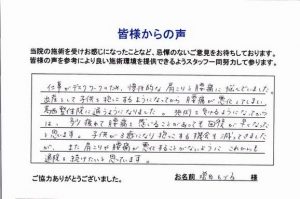 皆様からの声
当院の施術を受けお感じになったことなど、忌憚のないご意見をお待ちしております。
皆様の声を参考により良い施術環境を提供できるようスタッフ一同努力して参ります。
仕事がデスクワークのため、慢性的な肩こりと腰痛に悩んでいました。
出産をして子供を抱っこするようになってから腰痛が悪化してしまい、
整体院に通うようになりました。施術を受けるようになってから
は、多少疲れて腰痛を感じることがあっても回復が早くなった
と思います。子供が3歳になり抱っこする機会は減ってきました
が、また肩こりや腰痛が悪化することがないように これからも
通院を続けたいと思います。
ご協力ありがとうございました。
お名前 様